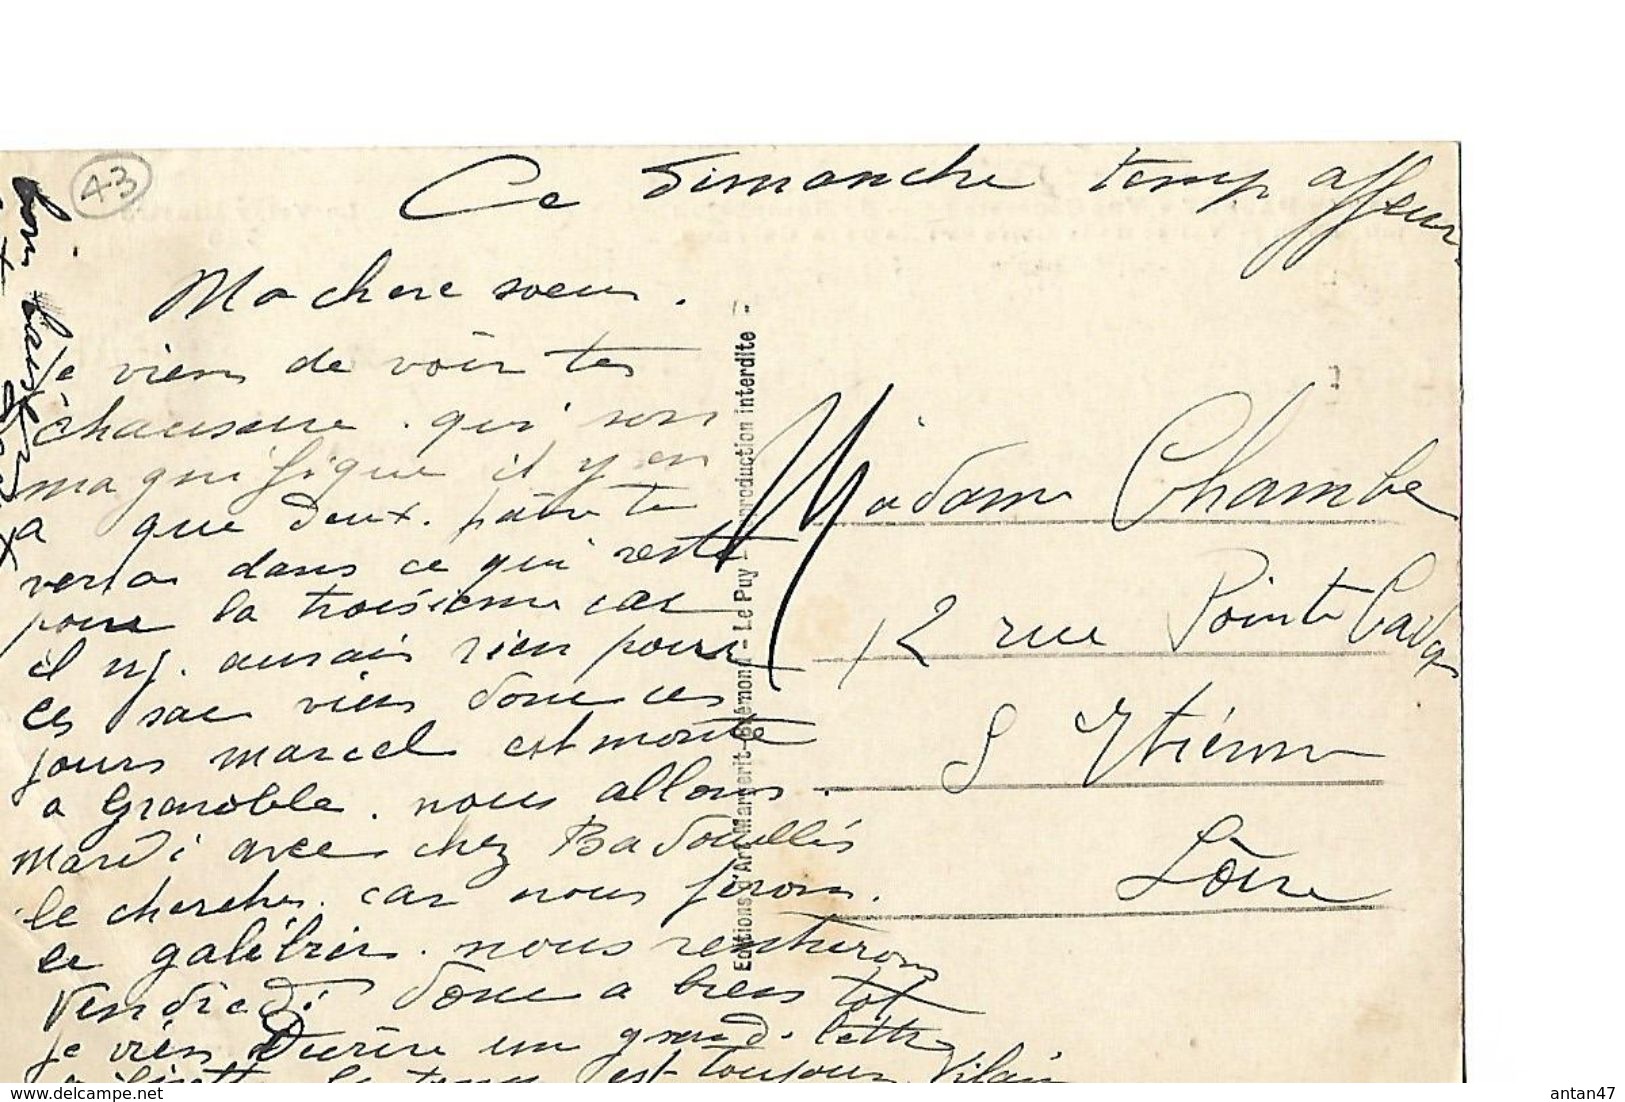 43
Ce Dimanche temp affeur
Ma chere soeur.
Je viens de voir tes
chaussure. qui son
magnifique il y en
a que deux. paire tu
verra dans ce qui reste
pour la troisieme car
il ny. aurais rien pour
ces sac viens donc ces
jours marcel est monté
a Grenoble. nous allons
mardi avec chez Badouillés
le chercher. car nous ferons.
le nous rentrerons
Vendredi donc a biens tot
je viens Durire un grand. lettre
le temps est toujour Vilain
bon baiser
Editions d'Art Margerit-Brémond - Le Puy - Reproduction interdite -
Madame Chambe
12 rue Pointe Cadet
S Etiénne
Lôire
antan47